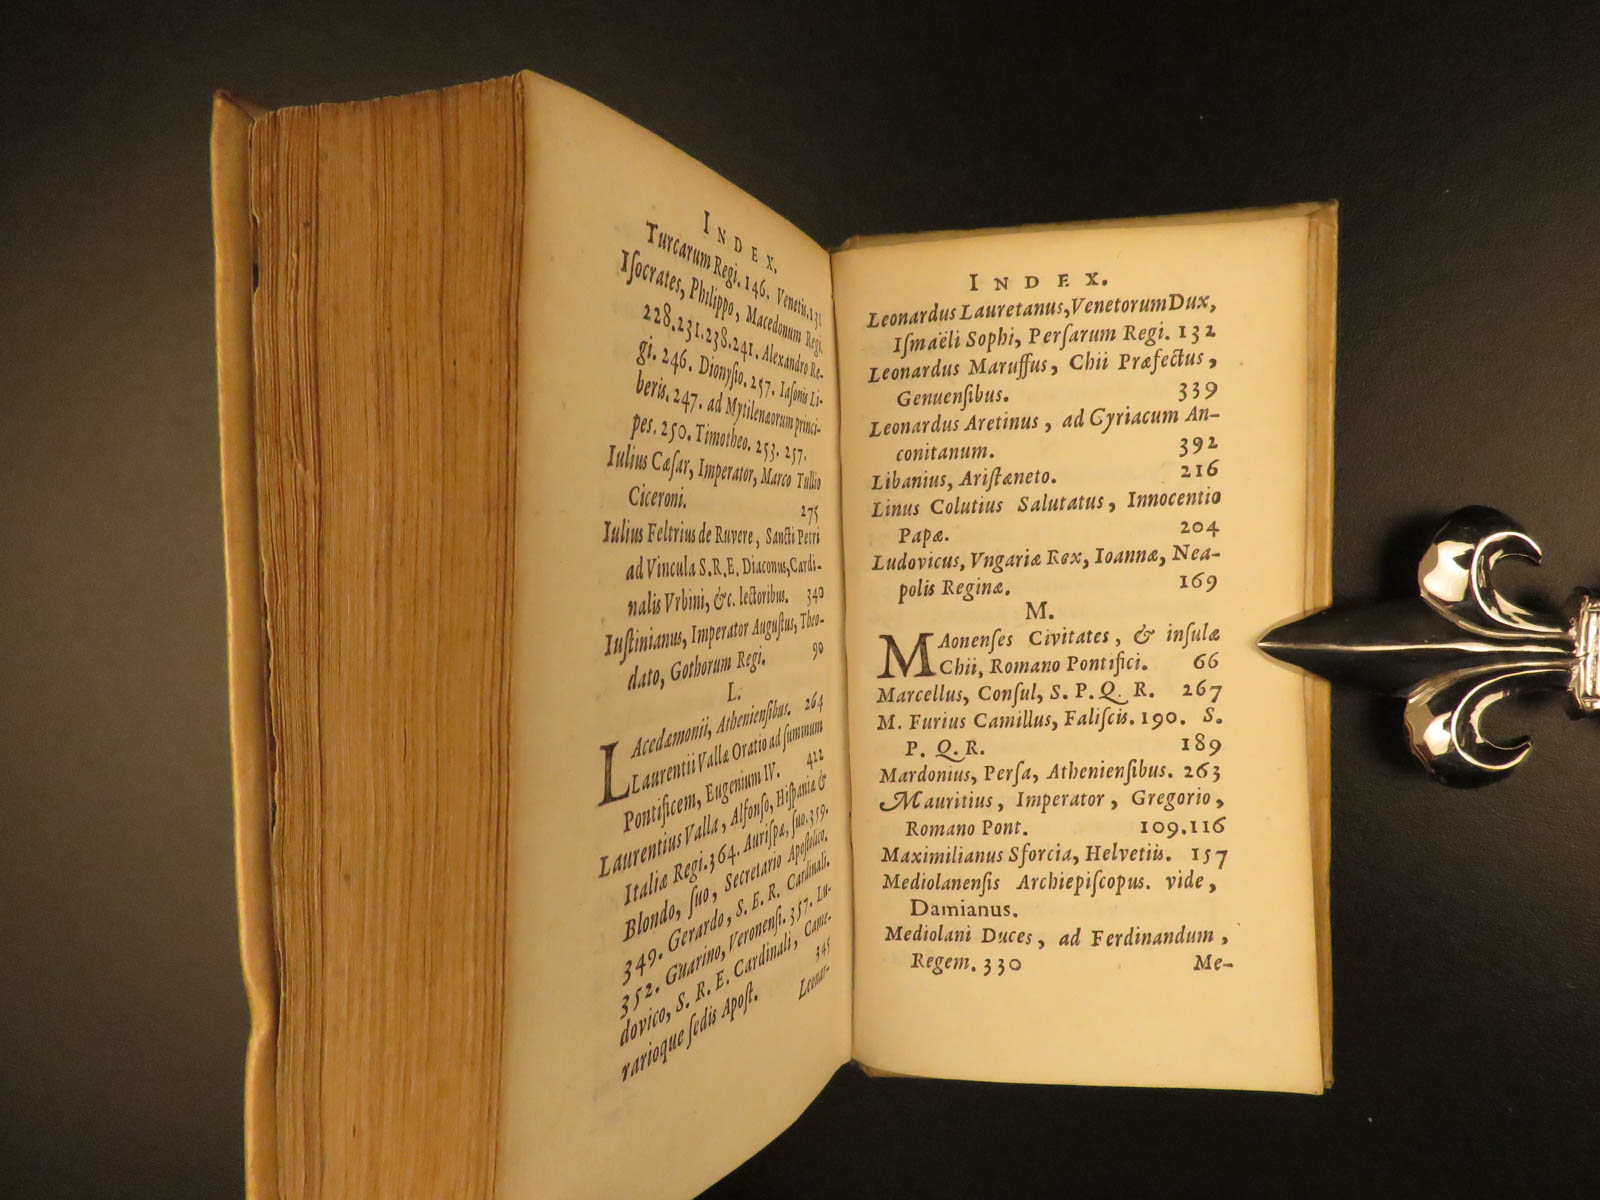 INDEX.
Turcarum Regi. 146. Venetiis. 131
Iſocrates, Philippo, Macedonum Regi.
228.231.238.241. Alexandro Re-
gi. 246. Dionyſio. 257. Iaſonis Li-
beris. 247. ad Mytilenæorum princi-
pes. 250. Timotheo. 253. 257.
Iulius Cæſar, Imperator, Marco Tullio
Ciceroni. 275
Iulius Feltrius de Ruvere, Sancti Petri
ad Vincula S.R.E. Diaconus, Cardi-
nalis Vrbini, &c. lectoribus. 340
Iuſtinianus, Imperator Auguſtus, Theo-
dato, Gothorum Regi. 90
L.
LAcedæmonii, Athenienſibus. 264
Laurentii Vallæ Oratio ad ſummum
Pontificem, Eugenium IV. 422
Laurentius Valla, Alfonſo, Hiſpaniæ &
Italiæ Regi. 364. Auriſpæ, ſuo. 359.
Blondo, ſuo, Secretario Apoſtolico.
349. Gerardo, S. E. R. Cardinali.
352. Guarino, Veronenſi. 357. Lu-
dovico, S. R. E. Cardinali, Came-
rarioque ſedis Apoſt. 345
Leonar-
INDEX.
Leonardus Lauretanus, Venetorum Dux,
Iſmaëli Sophi, Perſarum Regi. 132
Leonardus Maruffus, Chii Præfectus,
Genuenſibus. 339
Leonardus Aretinus, ad Cyriacum An-
conitanum. 392
Libanius, Ariſtæneto. 216
Linus Colutius Salutatus, Innocentio
Papæ. 204
Ludovicus, Vngariæ Rex, Ioannæ, Nea-
polis Reginæ. 169
M.
MAonenſes Civitates, & inſulæ
Chii, Romano Pontifici. 66
Marcellus, Conſul, S. P. Q. R. 267
M. Furius Camillus, Faliſcis. 190. S.
P. Q. R. 189
Mardonius, Perſa, Athenienſibus. 263
Mauritius, Imperator, Gregorio,
Romano Pont. 109.116
Maximilianus Sforcia, Helvetiis. 157
Mediolanenſis Archiepiſcopus. vide,
Damianus.
Mediolani Duces, ad Ferdinandum,
Regem. 330
Me-